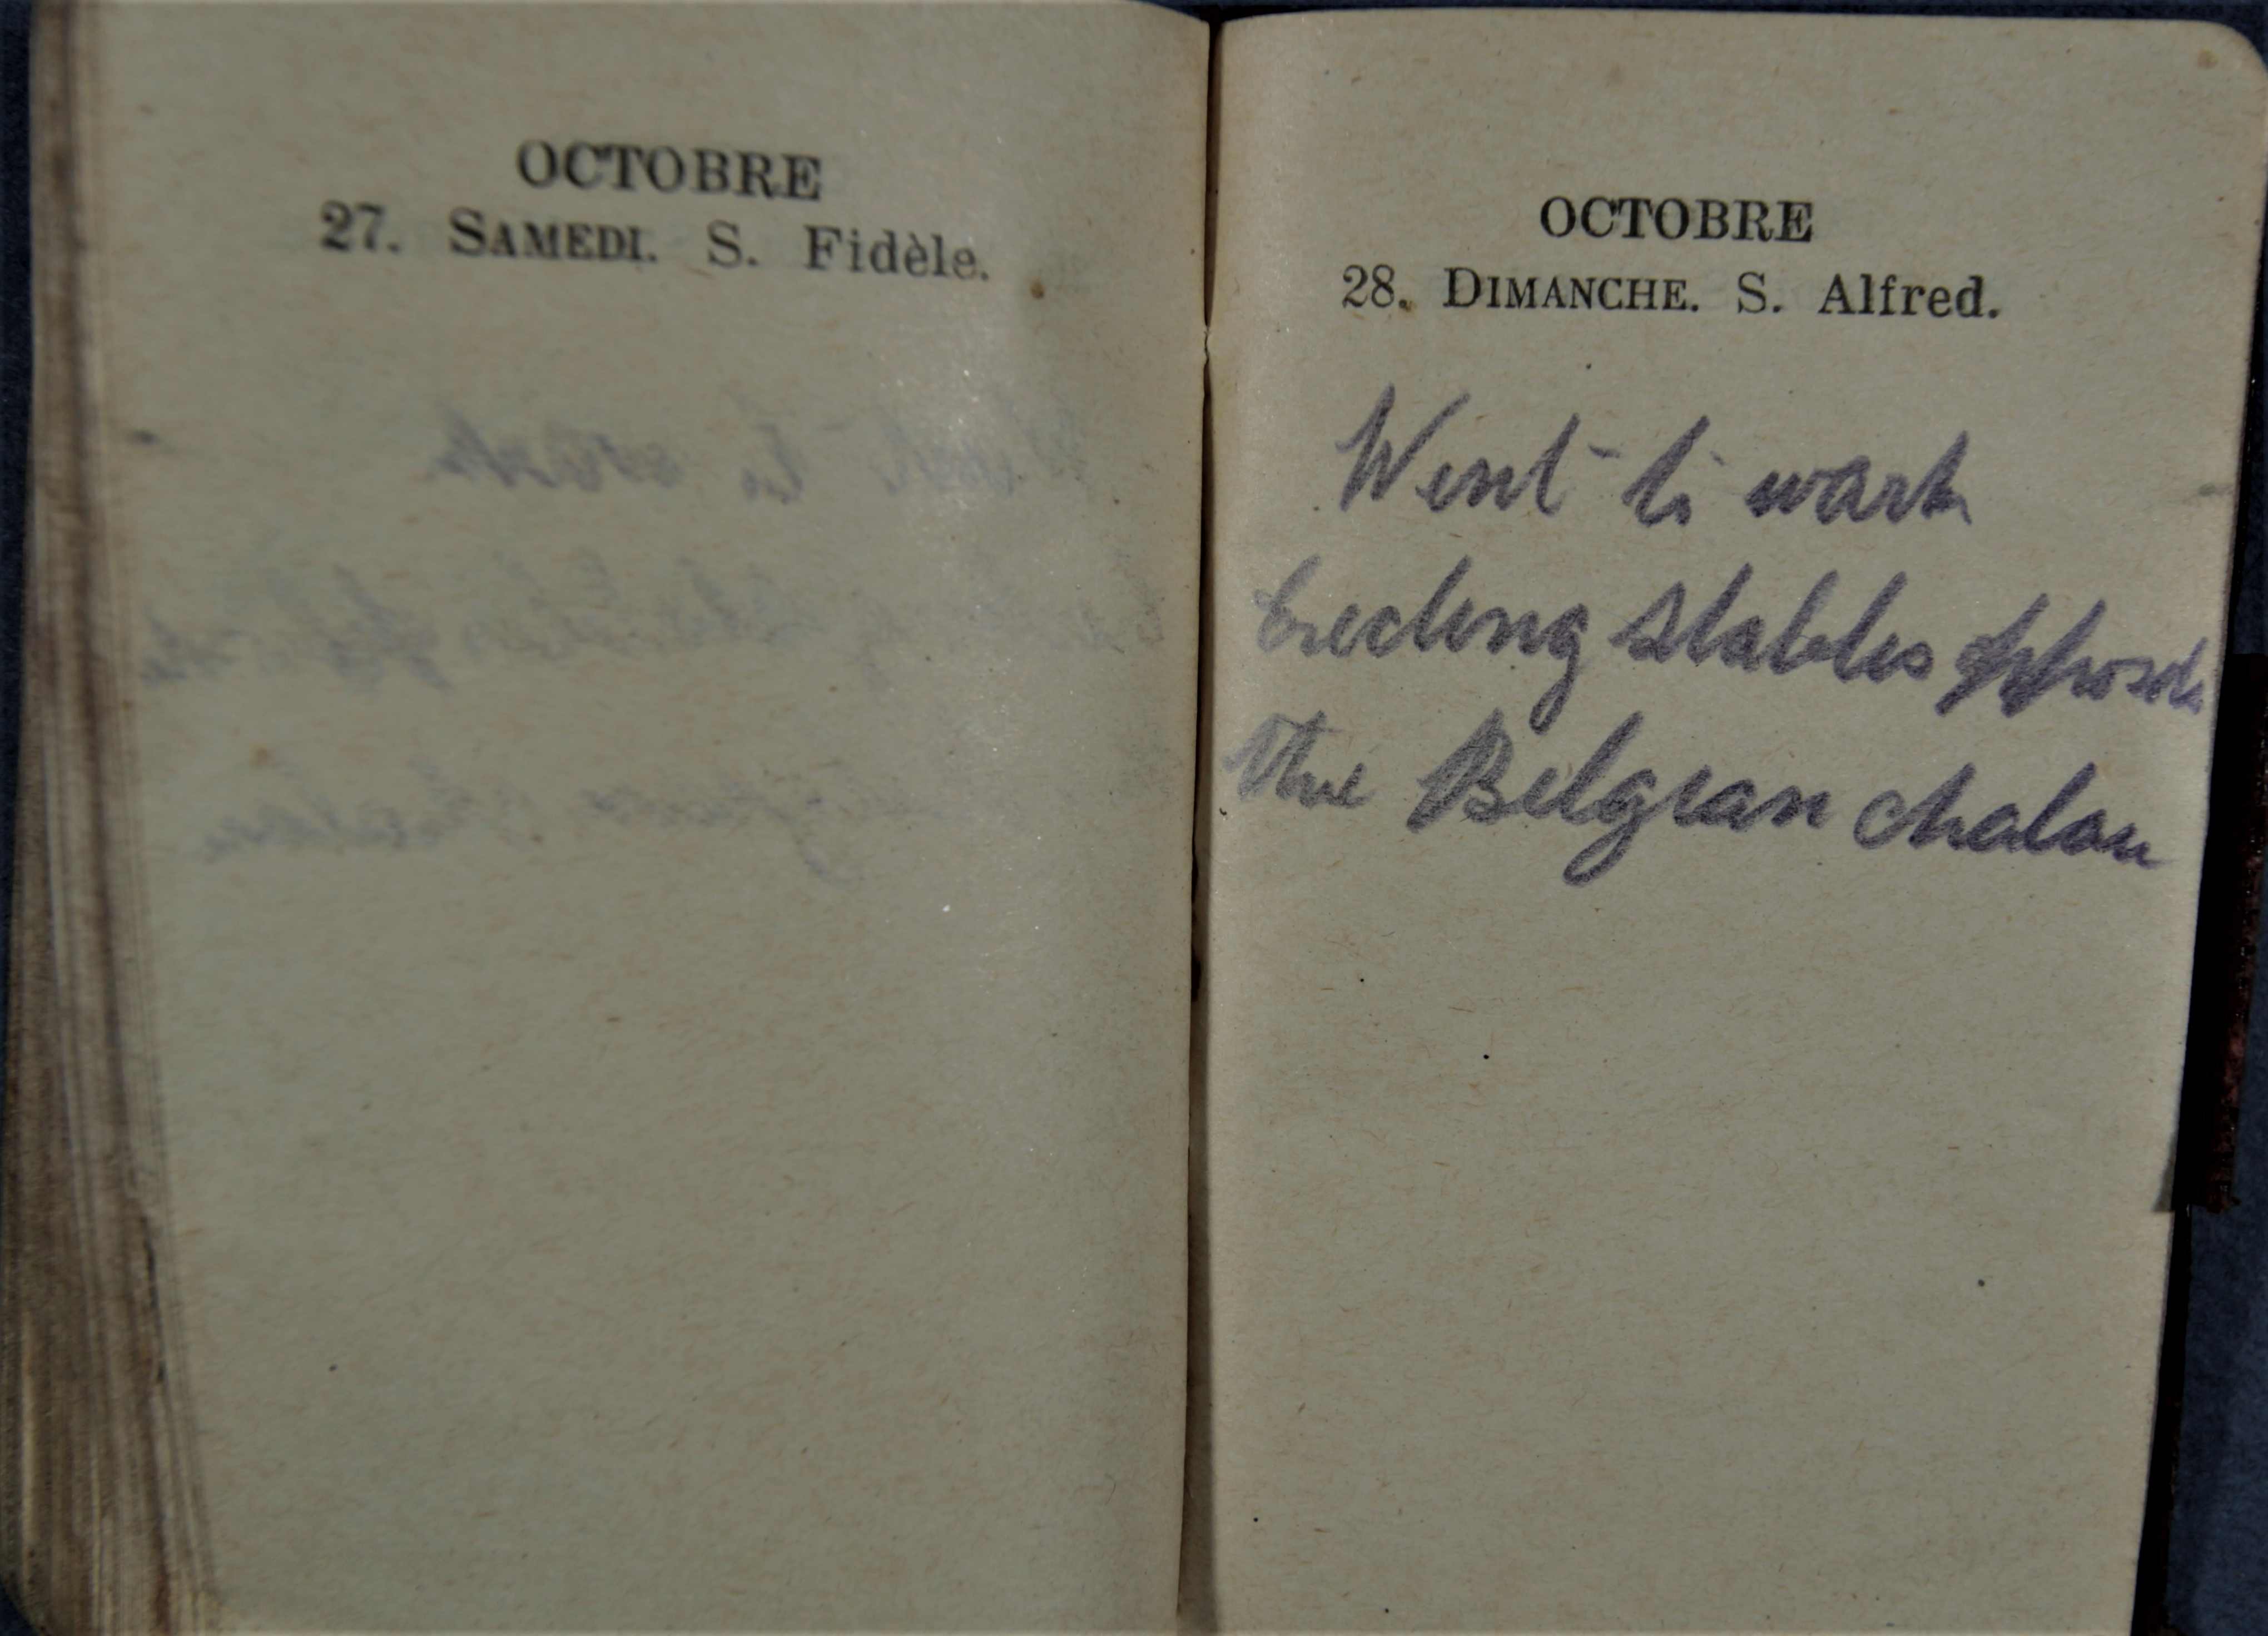 OCTOBRE
27. SAMEDI. S. Fidèle.
OCTOBRE
28. DIMANCHE. S. Alfred.
Went to work
Erecting stables opposite
the Belgian chatau